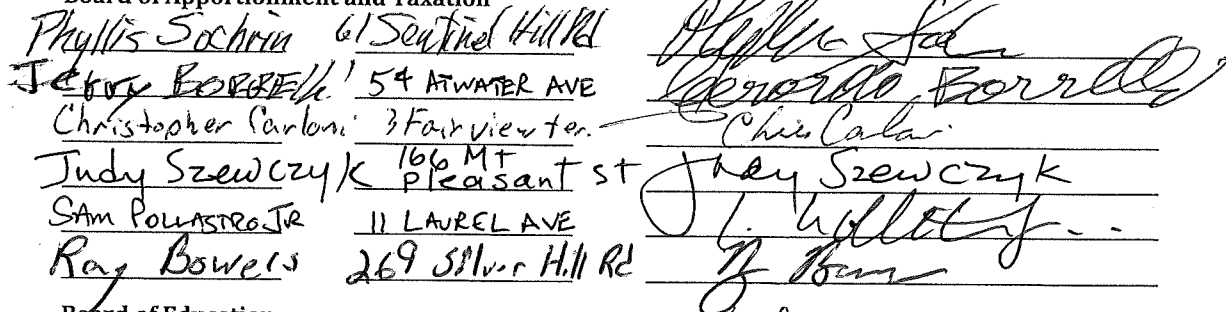 Board of Apportionment and Taxation
Phyllis Sochrin 61 Sentinel Hill Rd
Jerry BORRElli 54 ATWATER AVE Gerardo Borrelli
Christopher Carloni 3 Fairview ter. Chris
Judy Szewczyk 166 Mt pleasant st Judy Szewczyk
SAM POLLASTRO JR 11 LAUREL AVE
Ray Bowers 269 Silver Hill Rd
Board of Education